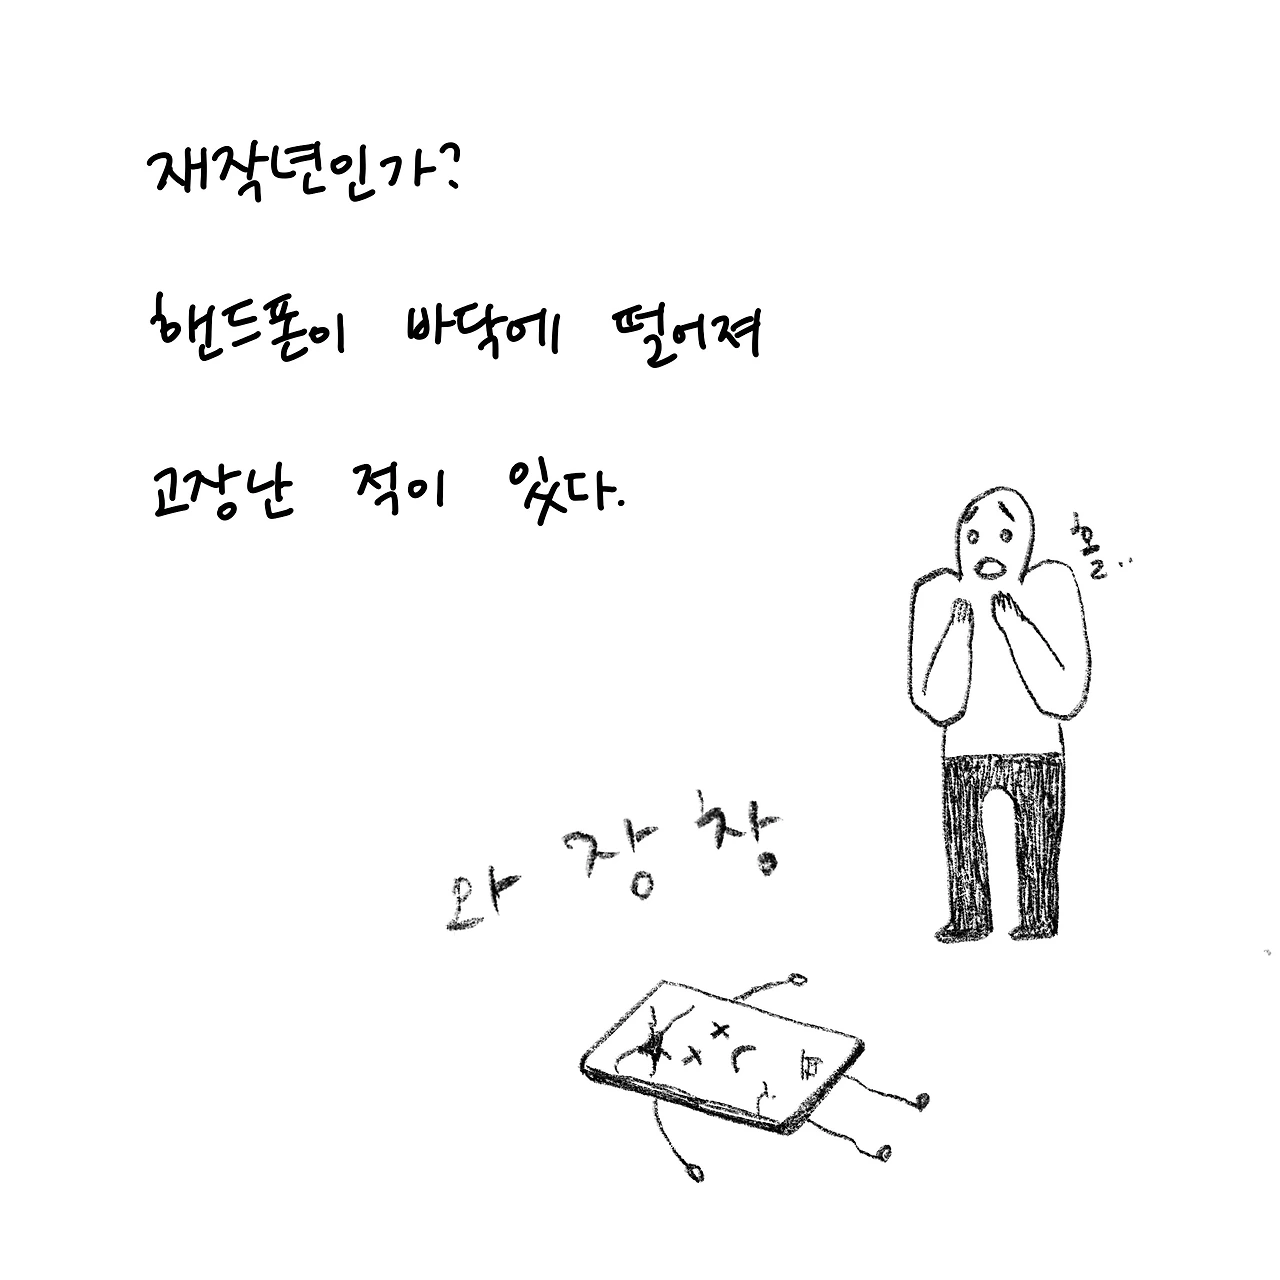 재작년인가?
핸드폰이 바닥에 떨어져
고장난 적이 있다.
홀..
와장창